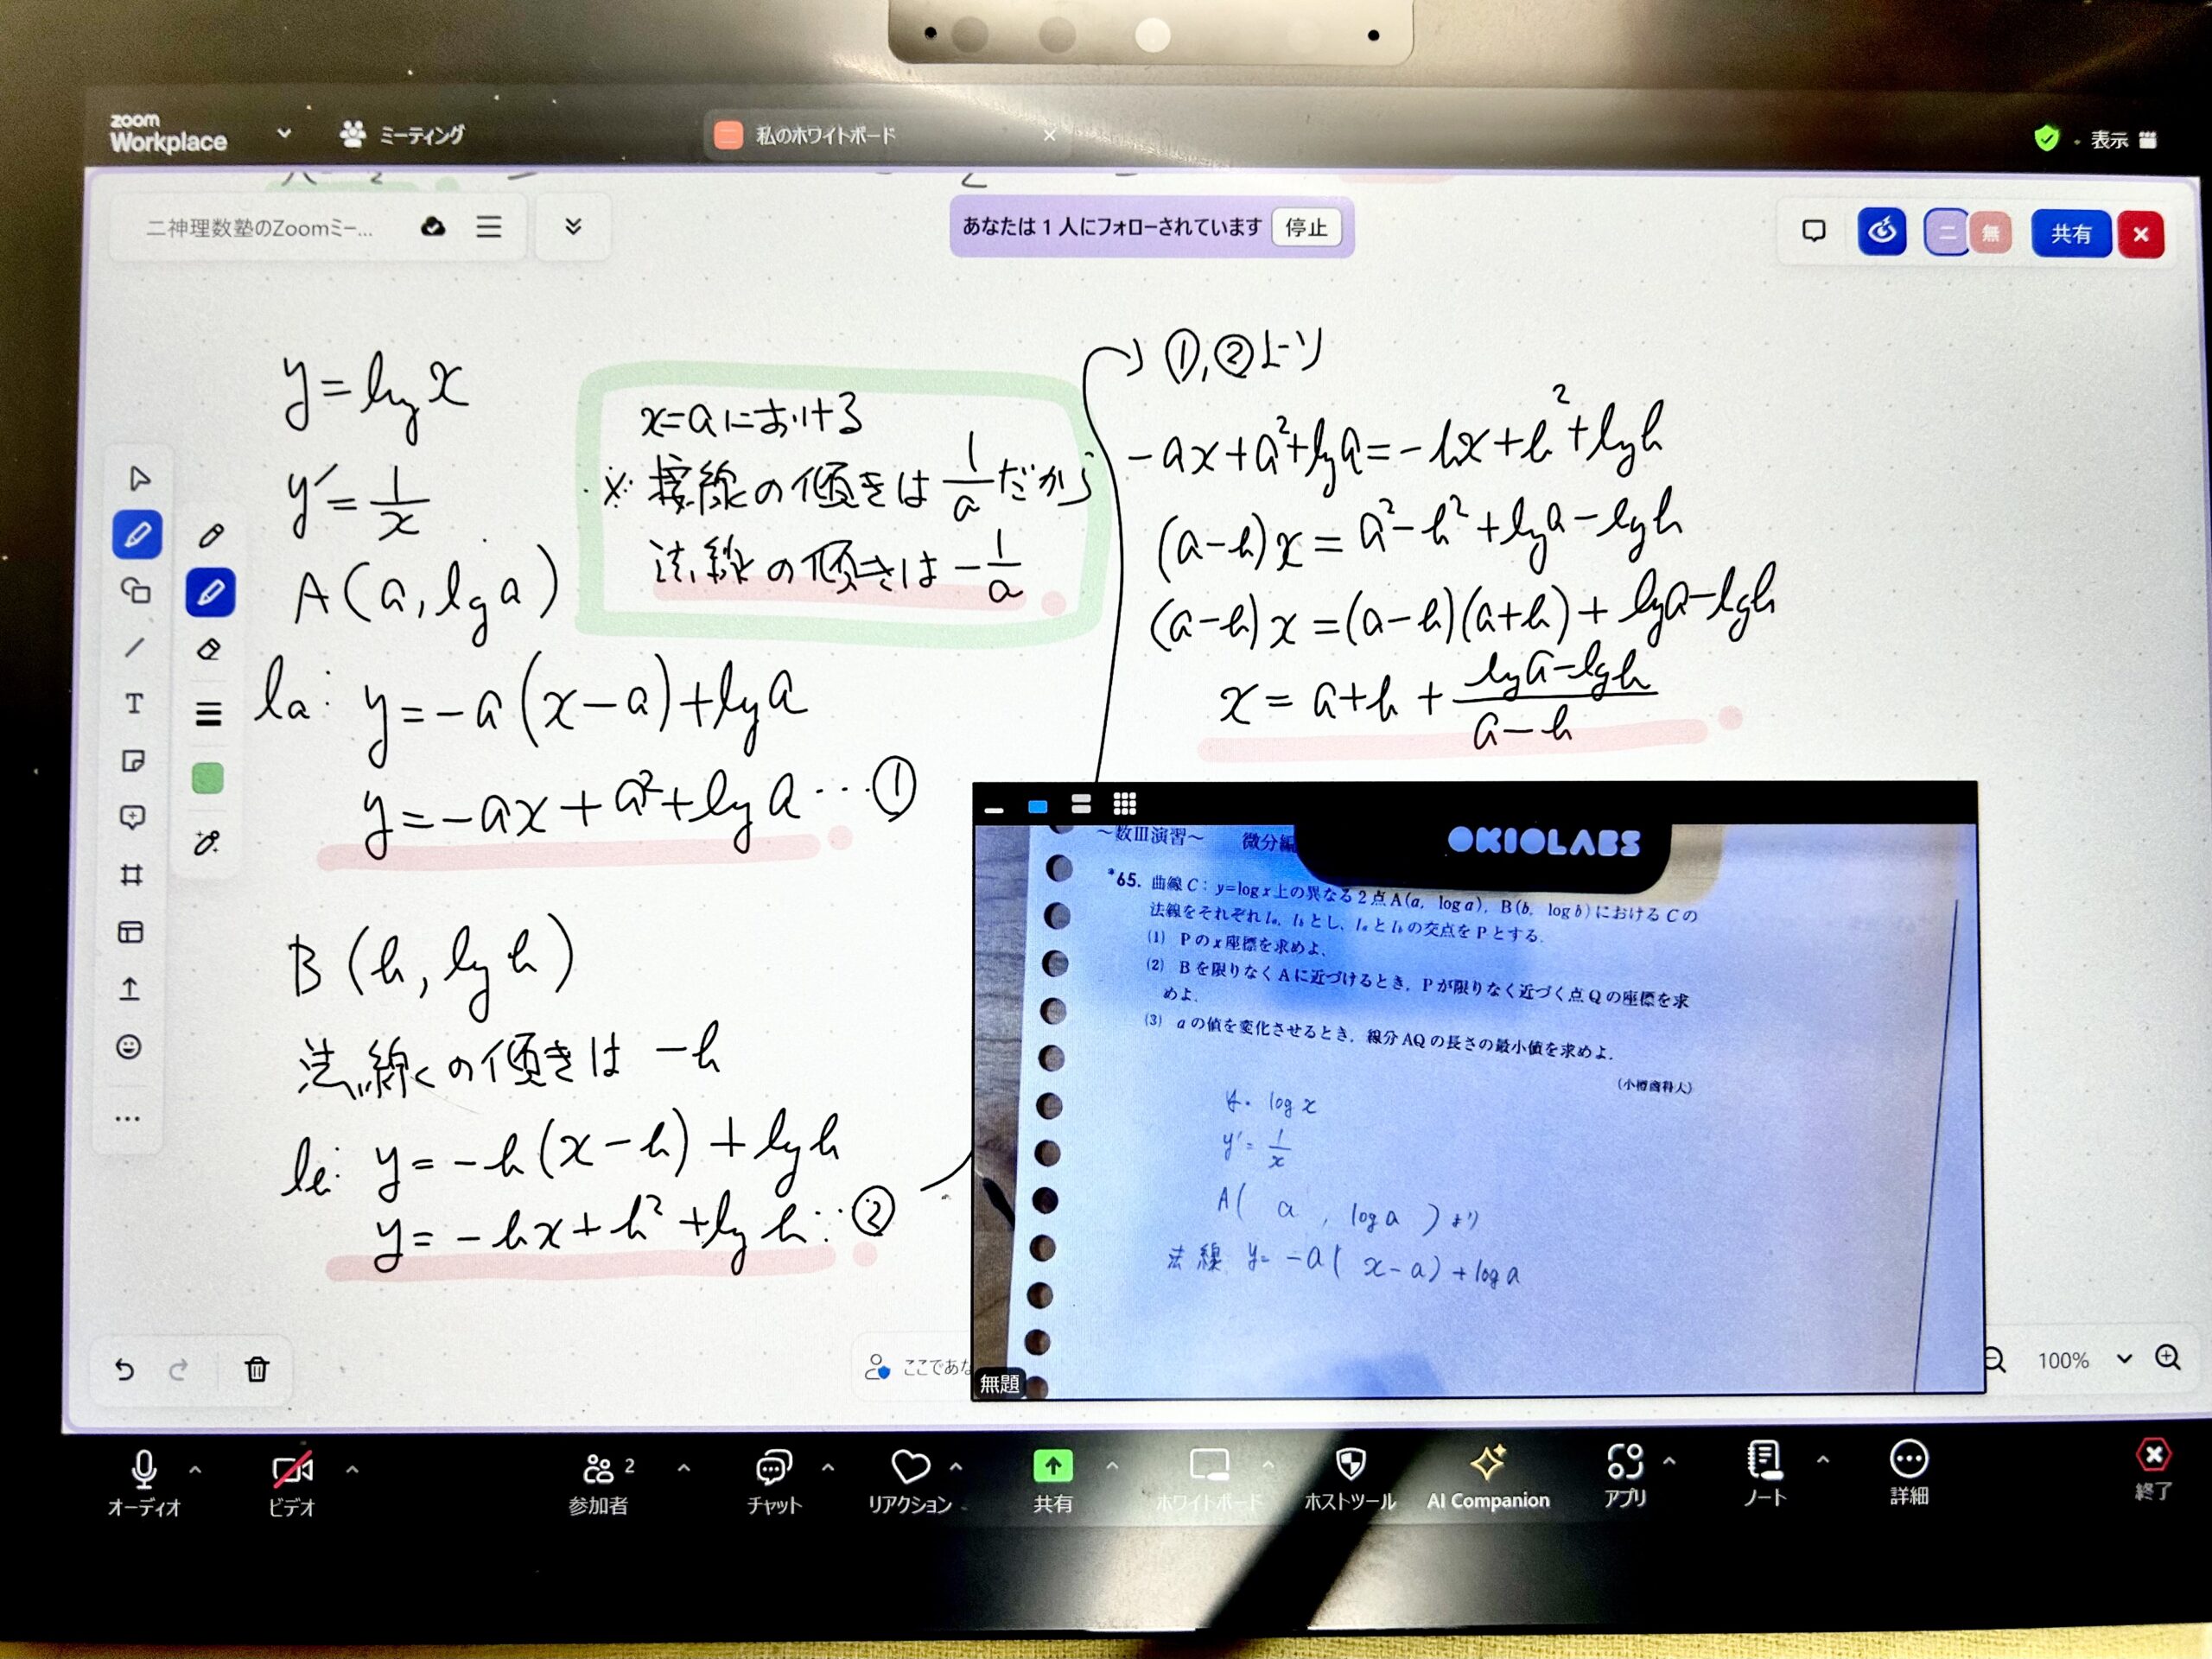 zoom
Workplace
ミーティング
私のホワイトボード
表示
二神理数塾のZoomミー...
あなたは 1 人にフォローされています
停止
二
無
共有
y=log x
y'=1/x
A(a, log a)
la: y=-a(x-a)+log a
y=-ax+a²+log a…①
x=aにおける
※接線の傾きは1/aだから
法線の傾きは-1/a
B(b, log b)
法線の傾きは -b
lb: y=-b(x-b)+log b
y=-bx+b²+log b…②
①,②より
-ax+a²+log a=-bx+b²+log b
(a-b)x=a²-b²+log a-log b
(a-b)x=(a-b)(a+b)+log a-log b
x=a+b+(log a-log b)/(a-b)
OKIOLABS
~数III演習~ 微分編
*65. 曲線 C:y=log x 上の異なる2点 A(a, log a), B(b, log b) における C の
法線をそれぞれ la, lb とし、la と lb の交点を P とする.
(1) P の x 座標を求めよ.
(2) B を限りなく A に近づけるとき, P が限りなく近づく点 Q の座標を求
めよ.
(3) a の値を変化させるとき, 線分 AQ の長さの最小値を求めよ.
(小樽商科大)
y= log x
y'=1/x
A( a , log a ) より
法線 y= -a( x-a) + log a
無題
ここであな
100%
オーディオ
ビデオ
2
参加者
チャット
リアクション
共有
ホワイトボード
ホストツール
AI Companion
アプリ
ノート
詳細
終了
T